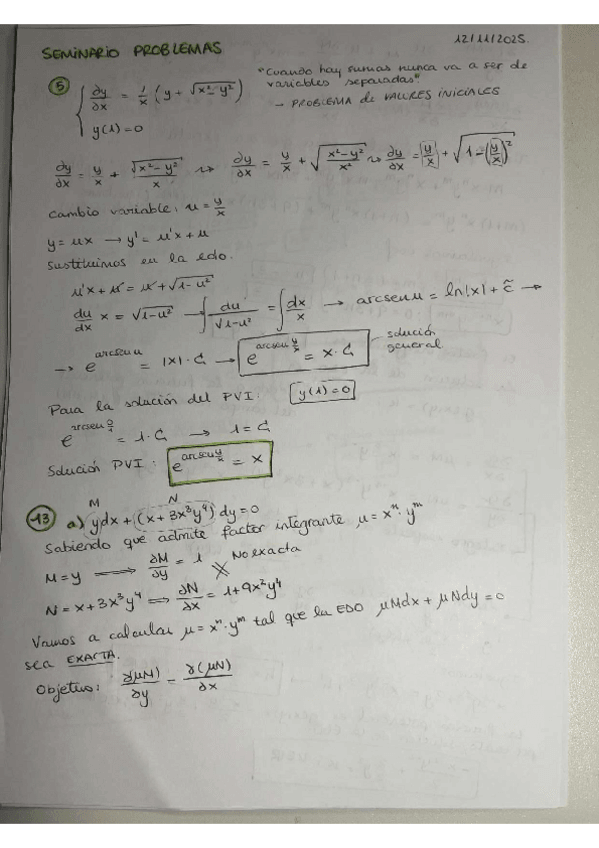 12/11/2025.
SEMINARIO PROBLEMAS
"Cuando hay sumas nunca va a ser de variables separadas"
⑤ { ∂y/∂x = 1/x (y + √(x²-y²))
→ PROBLEMA de VALORES INICIALES
y(1) = 0
∂y/∂x = y/x + √(x²-y²)/x ↝ ∂y/∂x = y/x + √((x²-y²)/x²) ↝ ∂y/∂x = (y/x) + √(1-(y/x)²)
Cambio variable: u = y/x
y = ux → y' = u'x + u
Sustituimos en la edo.
u'x + u = u + √(1-u²)
du/dx x = √(1-u²) → ∫ du/√(1-u²) = ∫ dx/x → arcsenu = ln|x| + c̃ →
→ e^(arcsenu) = |x|·C₁ → e^(arcsen y/x) = x·C₁ solución general
Para la solución del PVI: y(1) = 0
e^(arcsen 0/1) = 1·C₁ → 1 = C₁
Solución PVI: e^(arcsen y/x) = x
M N
⑬ a) ydx + (x + 3x³y⁴) dy = 0
Sabiendo que admite factor integrante μ = xⁿ·yᵐ
M = y ⟹ ∂M/∂y = 1
No exacta
N = x + 3x³y⁴ ⟹ ∂N/∂x = 1 + 9x²y⁴
Vamos a calcular μ = xⁿ·yᵐ tal que la EDO μMdx + μNdy = 0
sea EXACTA.
Objetivo: ∂(μM)/∂y = ∂(μN)/∂x